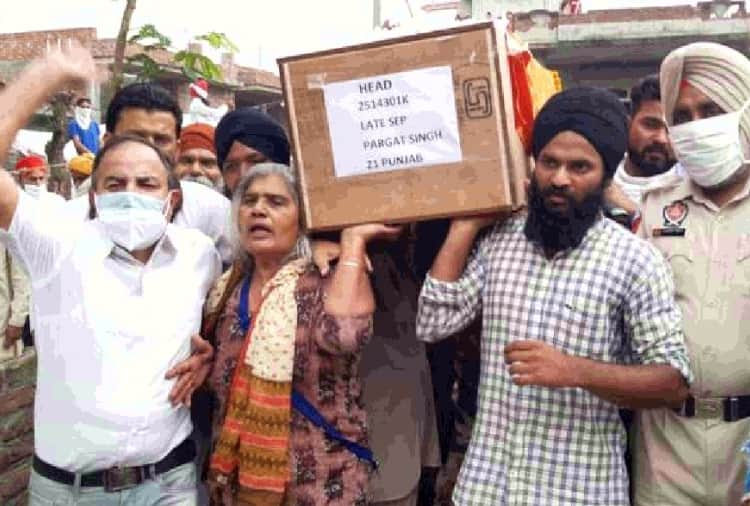 HEAD
2514301K
LATE SEP
PARGAT SINGH
21 PUNJAB